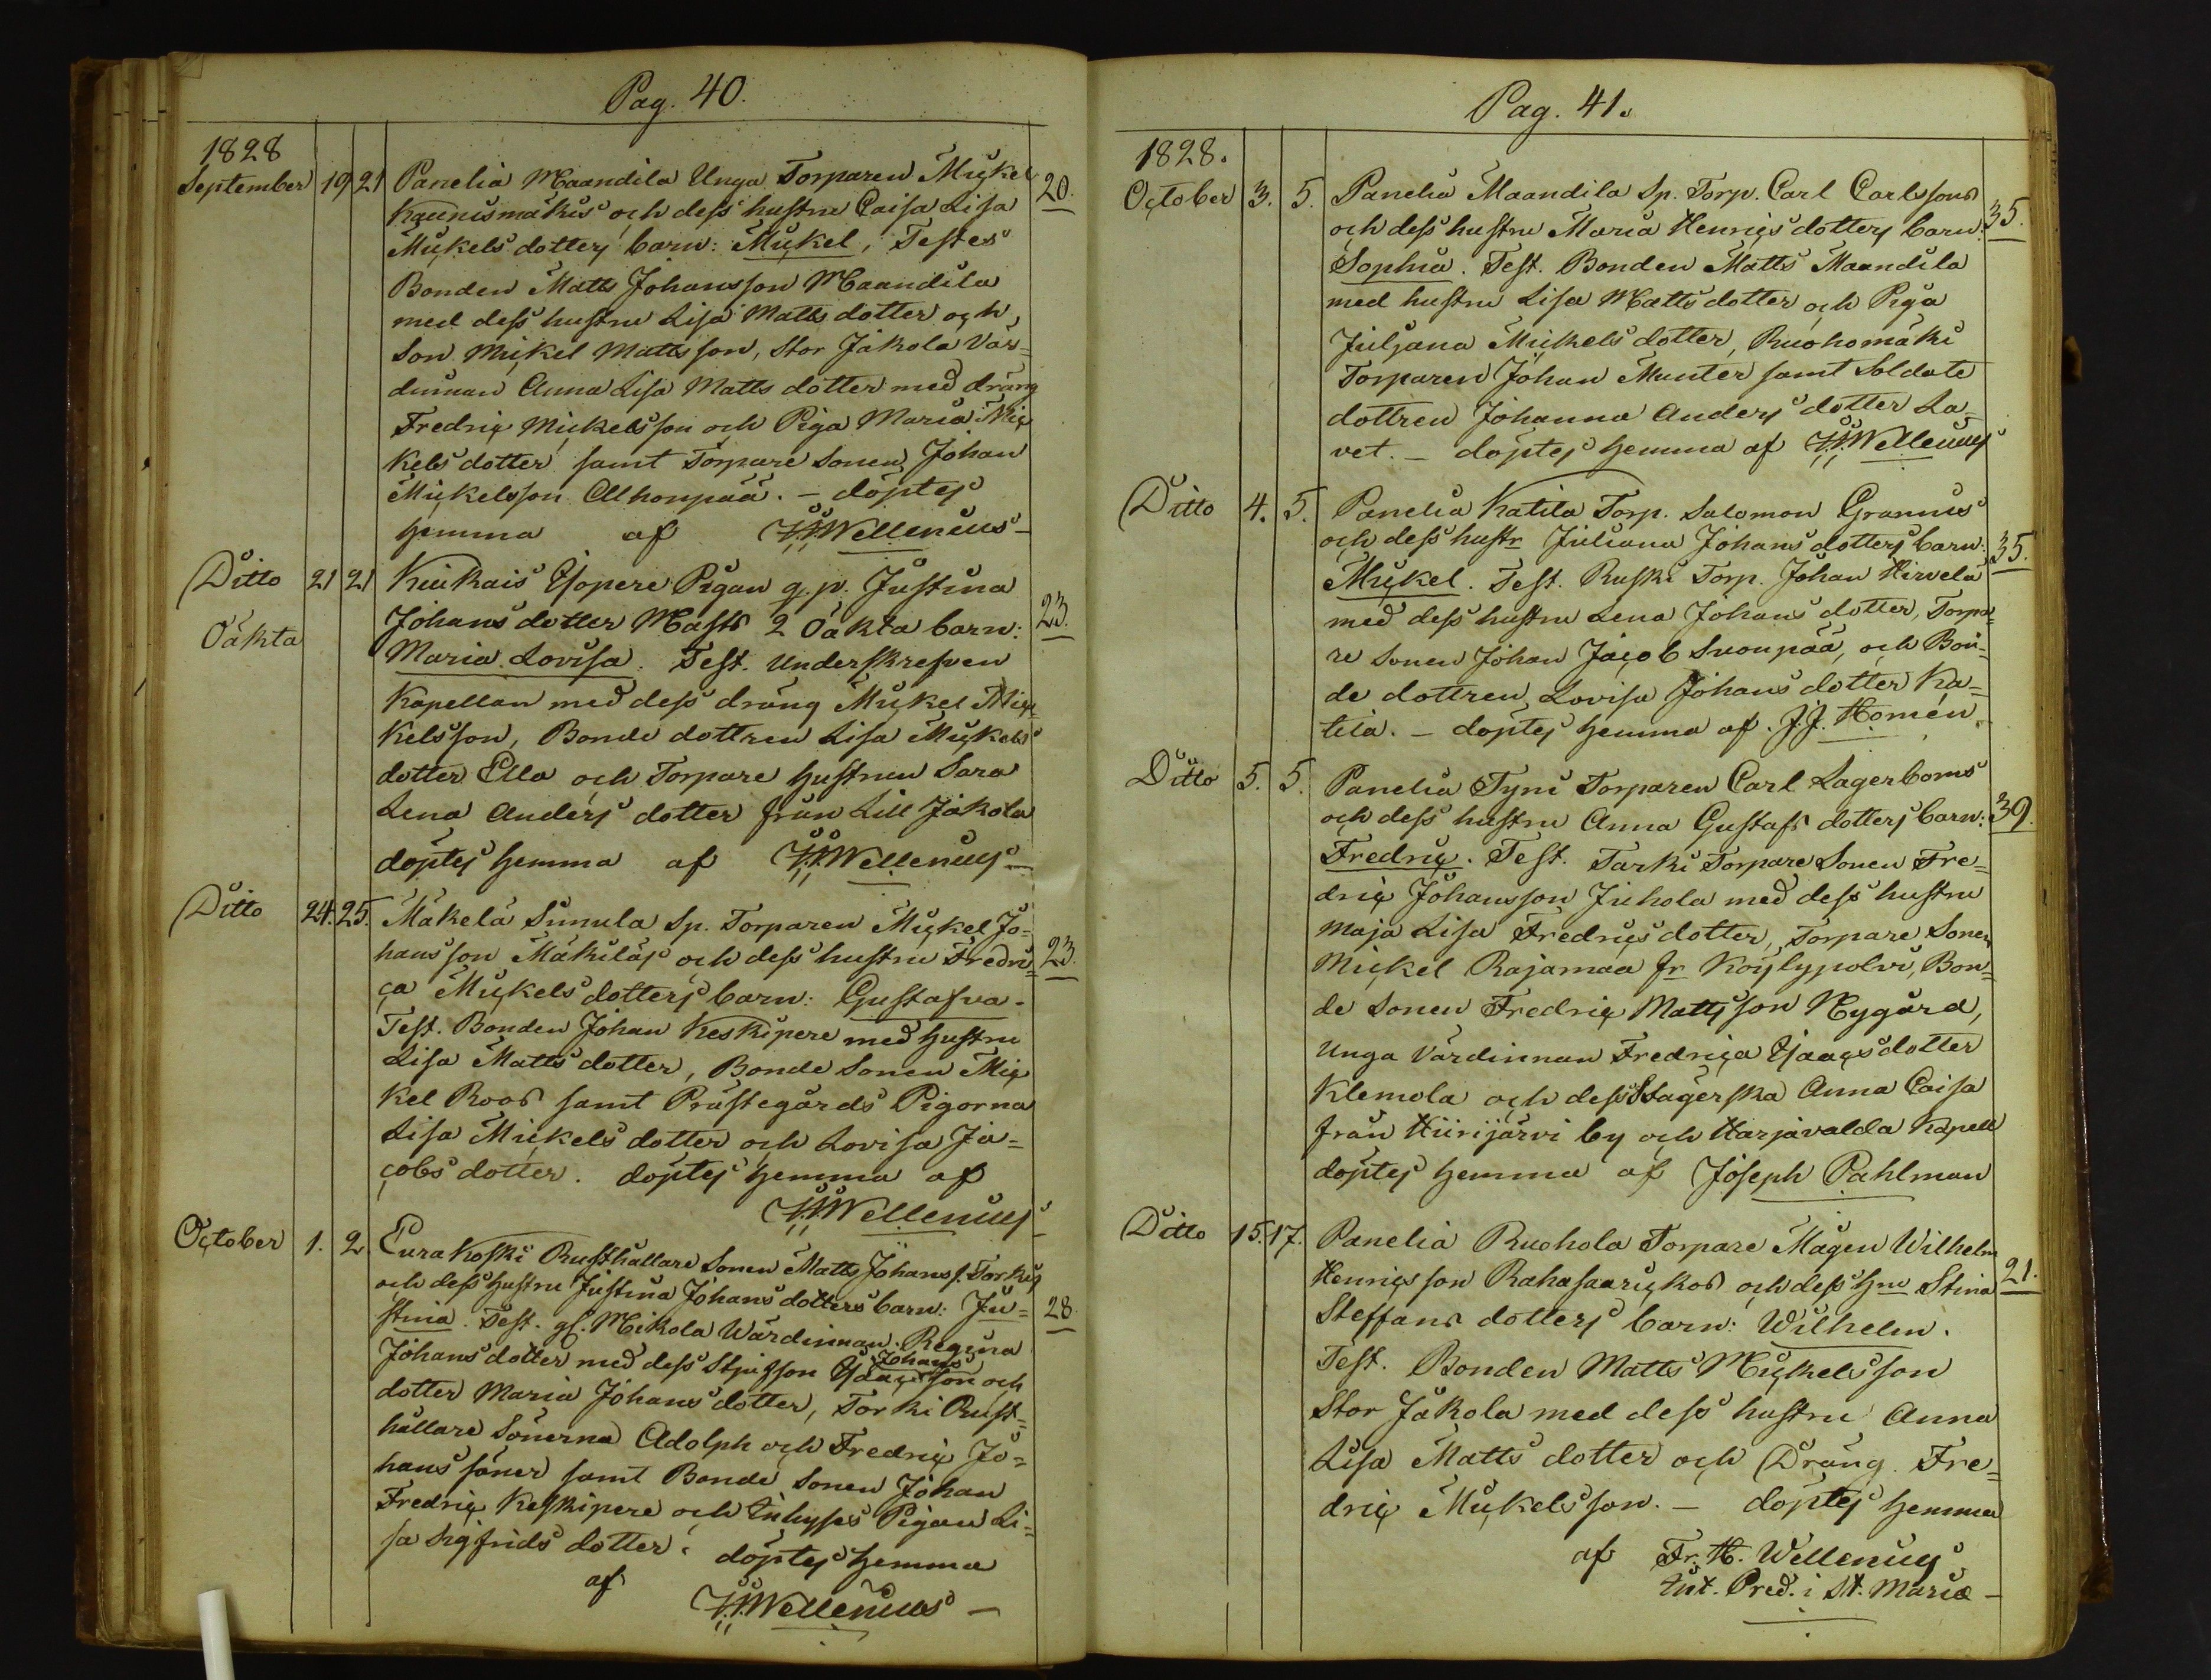 Pag. 40.
1828
September 19 21 Panelia Maandila Unga Torparen Mickel 20.
Kaunismäkis och dess hustru Caisa Lisa
Mickels dotters barn: Mickel, Testes
Bonden Matts Johansson Maandila
med dess hustru Lisa Matts dotter och
Son Mickel Mattsson, Stor Jäkola Vär=
dinnan Anna Lisa Matts dotter med dräng
Fredric Mickelsson och Piga Maria Mic
kels dotter samt Torpare Sonen Johan
Mickelsson Alhonpää. – döptes
hemma af Wellenius –
Ditto 21 21 Kiukais Esopere Pigan g. p. Justina
Oäkta Johans dotter Masts 2 Oäkta barn: 23.
Maria Lovisa. Test. Underskrefven
Kapellan med dess dräng Mickel Mic
kelsson, Bonde dottren Lisa Mickels
dotter Ella och Torpare hustrun Sara
Lena Anders dotter från Lill Jäkola
döptes hemma af Wellenius –
Ditto 24. 25. Mäkelä Simula Sp. Torparen Mickel Jo=
hansson Mäkiläs och dess hustru Fredri= 23.
ca Mickels dotters barn: Gustafva.
Test. Bonden Johan Keskipere med hustru
Lisa Matts dotter, Bonde Sonen Mic
kel Roos samt Prästegårds Pigorna
Lisa Mickels dotter och Lovisa Ja=
cobs dotter. döptes hemma af
Wellenius
October 1. 2. Eura Koski Rusthållare Sonen Matts Johans s. Torkis
och dess hustru Justina Johans dotters barn: Ju= 28.
stina. Test. gl. Mikola Wärdinnan Regina
Johans dotter med dess Stjufson Johans son och
dotter Maria Johans dotter, Torki Rust=
hållare Sönerna Adolph och Fredric Jo=
hans söner samt Bonde Sonen Johan
Fredric Keskipere och Inhyses Pigan Li=
sa Sigfrids dotter. döptes hemma
af Wellenius –
Pag. 41.
1828.
October 3. 5. Panelia Maandila Sp. Torp. Carl Carlssons
och dess hustru Maria Henrics dotters barn: 35.
Sophia. Test. Bonden Matts Maandila
med hustru Lisa Matts dotter och Piga
Juljana Mickels dotter, Ruohomäki
Torparen Johan Munter samt Soldate
dottren Johanna Anders dotter La=
vet. – döptes hemma af Wellenius
Ditto 4. 5. Panelia Katila Torp. Salomon Grannus
och dess hustr Juliana Johans dotters barn: 35.
Mickel. Test. Ruski Torp. Johan Hirvelä
med dess hustru Lena Johans dotter, Torpa=
re Sonen Johan Jacob Suonpää, och Bon=
de dottren Lovisa Johans dotter Ka=
tila. – döptes hemma af J. J. Homén.
Ditto 5. 5. Panelia Tyni Torparen Carl Lagerboms
och dess hustru Anna Gustafs dotters barn: 39.
Fredric. Test. Tarki Torpare Sonen Fre=
dric Johansson Juhola med dess hustru
Maja Lisa Fredrics dotter, Torpare Sonen
Mickel Rajamaa fr Köylypolvi, Bon=
de Sonen Fredric Matts son Nygård,
Unga Värdinnan Fredrica Isaacs dotter
Klemola och dess Slägerska Anna Caisa
från Hiirijärvi by och Harjavalda Kapell
döptes hemma af Joseph Pahlman
Ditto 15. 17. Panelia Ruohola Torpare Mågen Wilhelm
Henrics son Rahasaarickos och dess hru Stina 21.
Steffans dotters barn: Wilhelm.
Test. Bonden Matts Mickelsson
Stor Jäkola med dess hustru Anna
Lisa Matts dotter och Dräng Fre=
dric Mickelsson. – döptes hemma
af Fr. H. Wellenius
Ext. Pred. i St. Mariæ –